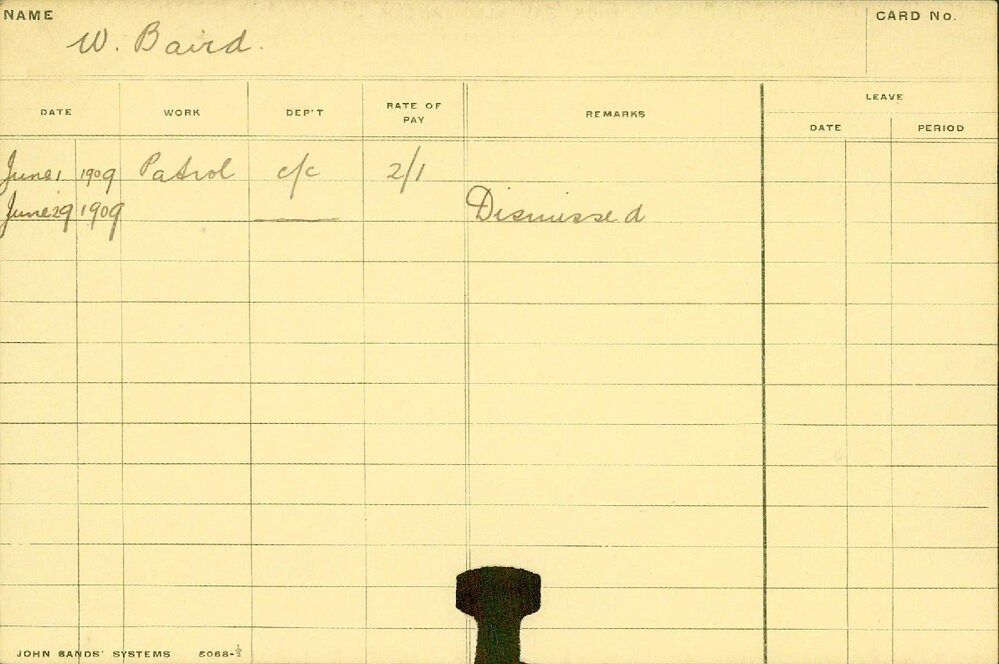 NAME
W. Baird.
CARD No.
DATE WORK DEP'T RATE OF PAY REMARKS LEAVE
DATE PERIOD
June 1 1909 Patrol c/c 2/1
June 29 1909 Dismissed
JOHN SANDS' SYSTEMS 5068-½